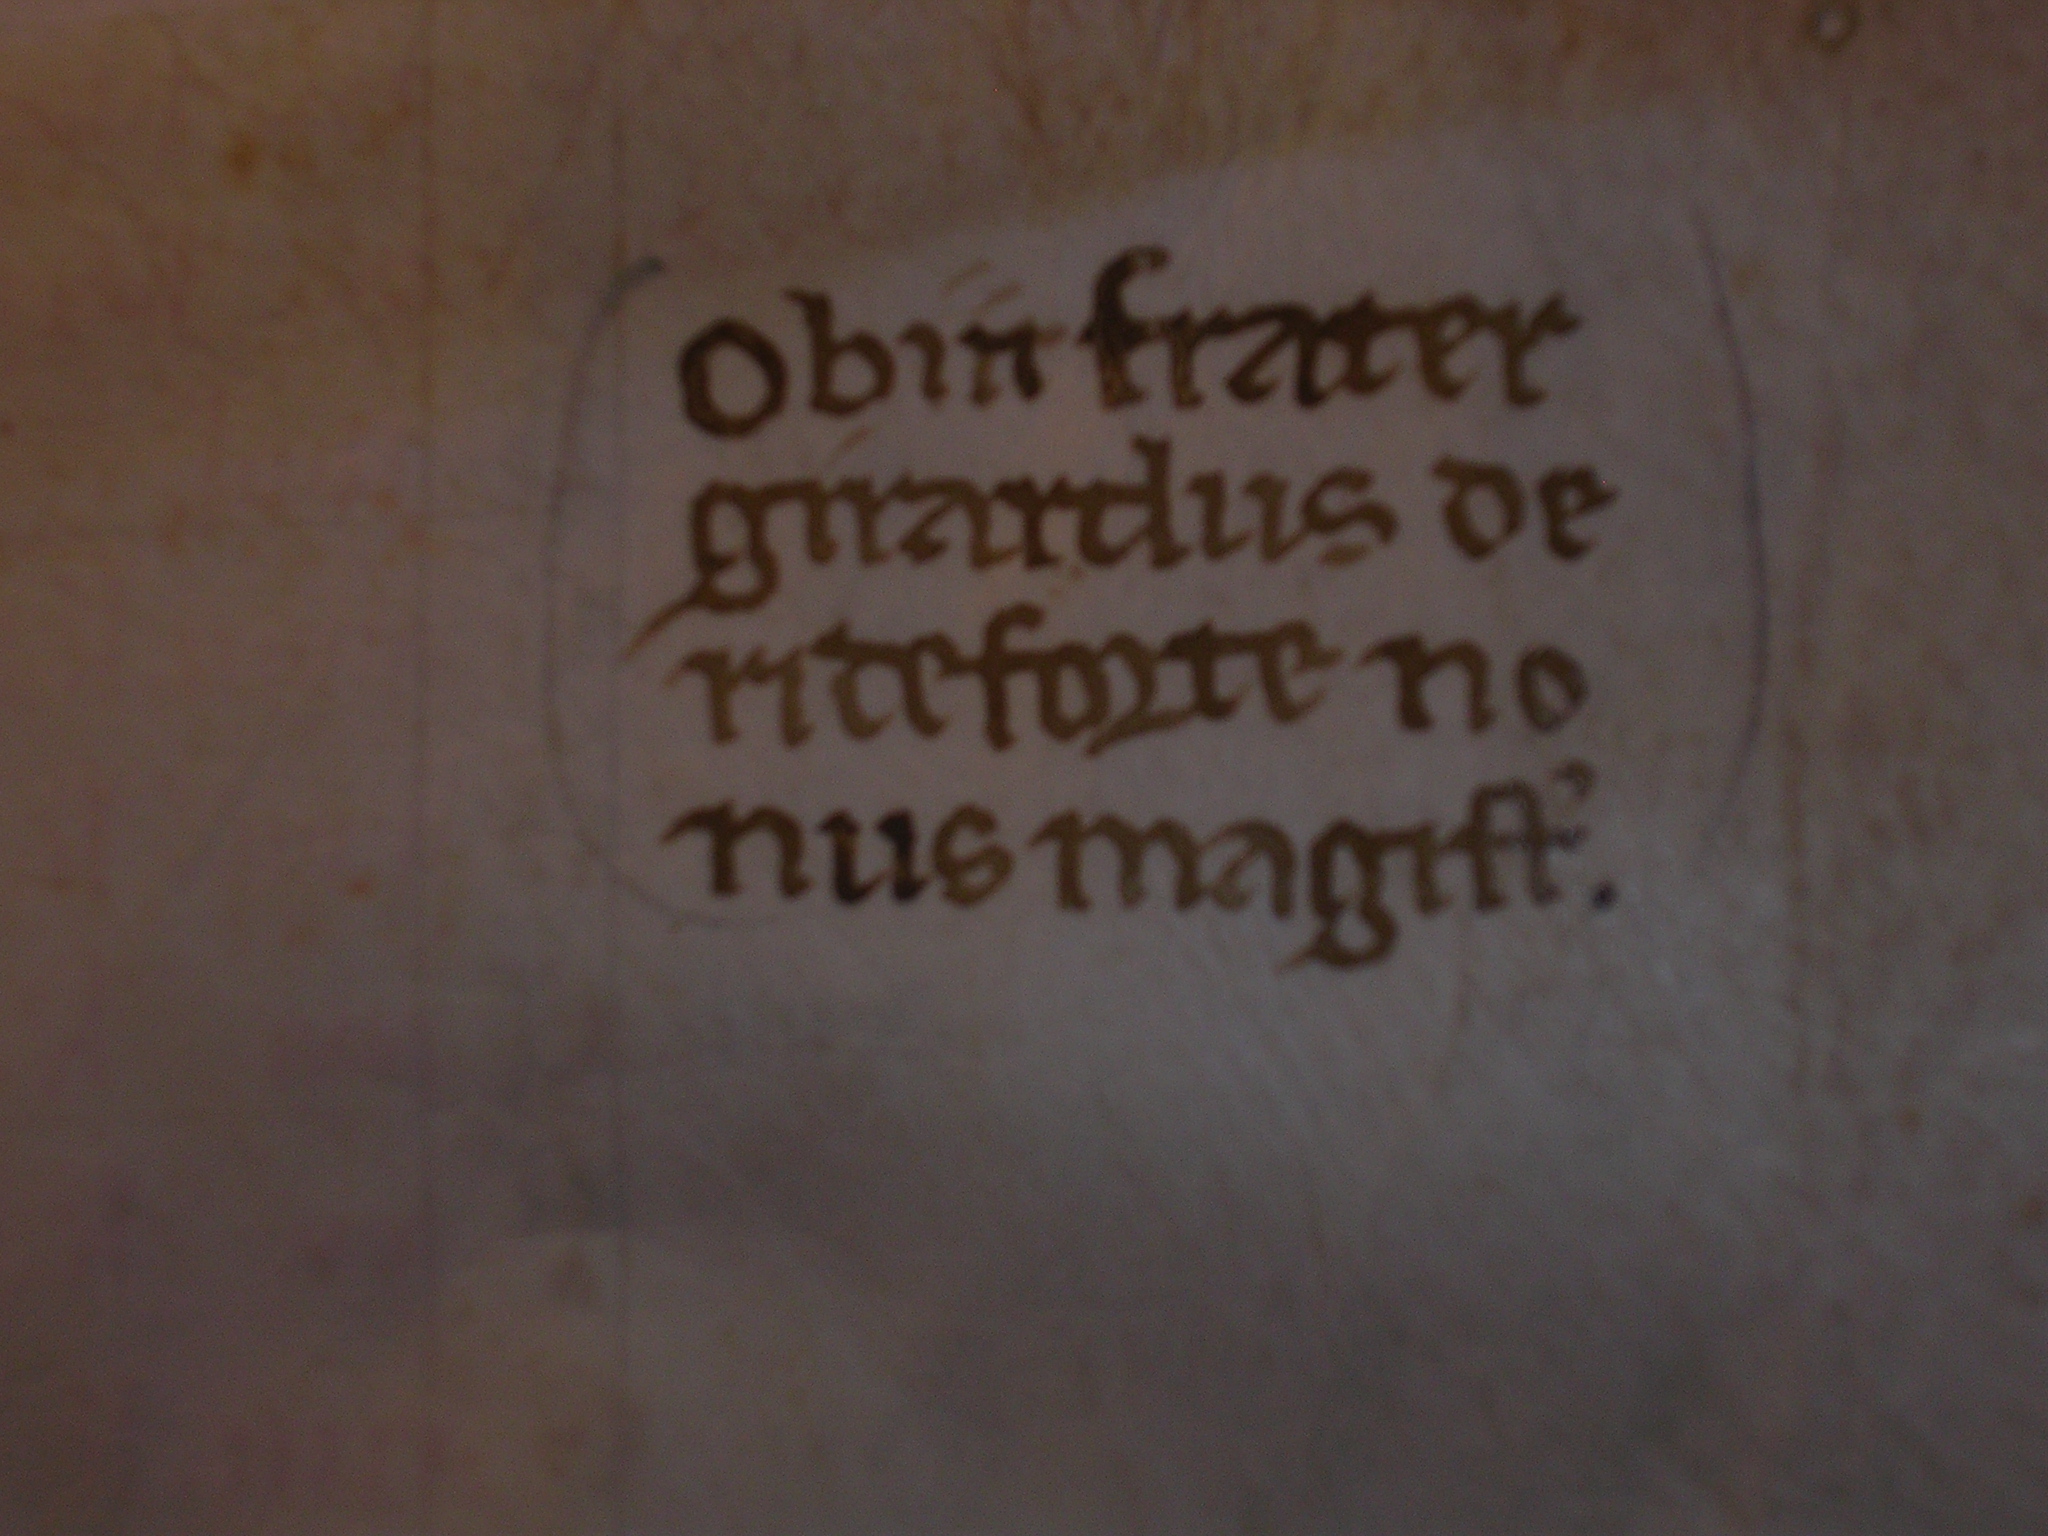 Obiit frater
girardus de
riteforte no
nus magist͛.